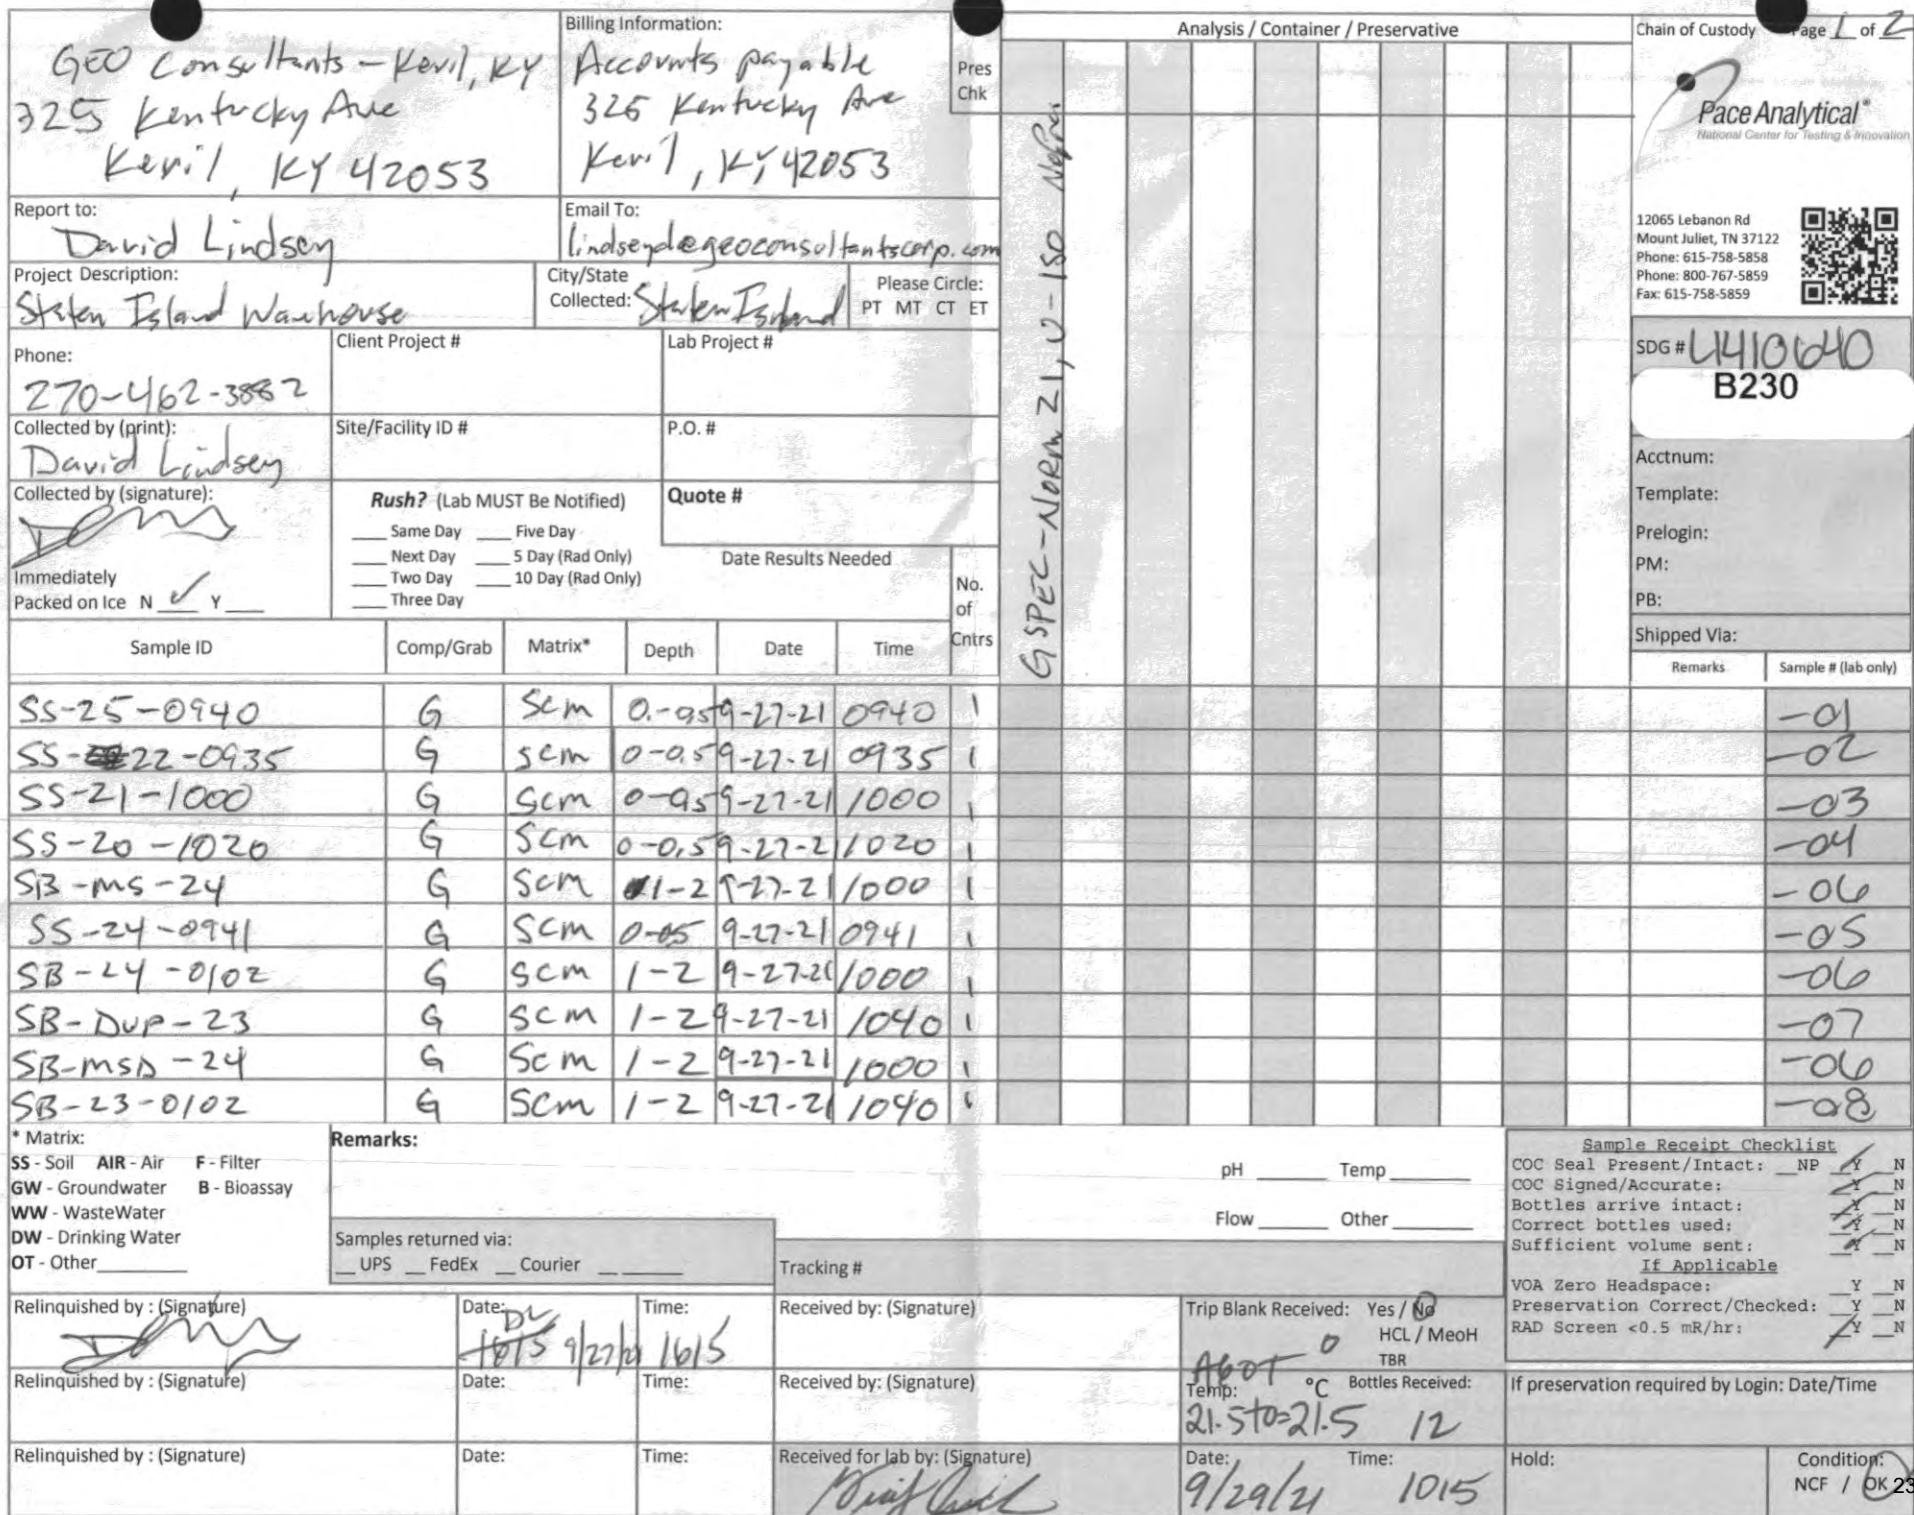 GEO Consultants - Kevil, KY
325 Kentucky Ave
Kevil, KY 42053
Billing Information:
Accounts payable
325 Kentucky Ave
Kevil, KY 42053
Pres
Chk
Analysis / Container / Preservative
Chain of Custody Page 1 of 2
Pace Analytical®
National Center for Testing & Innovation
12065 Lebanon Rd
Mount Juliet, TN 37122
Phone: 615-758-5858
Phone: 800-767-5859
Fax: 615-758-5859
Report to:
David Lindsey
Email To:
lindseyd@geoconsultantscorp.com
Project Description:
Staten Island Warhouse
City/State
Collected: Staten Island
Please Circle:
PT MT CT ET
Phone:
270-462-3882
Client Project #
Lab Project #
SDG # L1410640
B230
Collected by (print):
David Lindsey
Site/Facility ID #
P.O. #
Acctnum:
Template:
Prelogin:
PM:
PB:
Collected by (signature):
Rush? (Lab MUST Be Notified)
Same Day Five Day
Next Day 5 Day (Rad Only)
Two Day 10 Day (Rad Only)
Three Day
Quote #
Date Results Needed
Immediately
Packed on Ice N ✓ Y
No.
of
Cntrs
GSPEC-NORM 21, U-ISO NoPres
Shipped Via:
Sample ID Comp/Grab Matrix* Depth Date Time Remarks Sample # (lab only)
SS-25-0940 G SCM 0.-0.5 9-27-21 0940 1 -01
SS-22-0935 G SCM 0-0.5 9-27-21 0935 1 -02
SS-21-1000 G SCM 0-0.5 9-27-21 1000 1 -03
SS-20-1020 G SCM 0-0.5 9-27-21 1020 1 -04
SB-MS-24 G SCM 1-2 9-27-21 1000 1 -06
SS-24-0941 G SCM 0-05 9-27-21 0941 1 -05
SB-24-0102 G SCM 1-2 9-27-21 1000 1 -06
SB-DUP-23 G SCM 1-2 9-27-21 1040 1 -07
SB-MSD-24 G SCM 1-2 9-27-21 1000 1 -06
SB-23-0102 G SCM 1-2 9-27-21 1040 1 -08
* Matrix:
SS - Soil AIR - Air F - Filter
GW - Groundwater B - Bioassay
WW - WasteWater
DW - Drinking Water
OT - Other
Remarks:
pH Temp
Flow Other
Samples returned via:
UPS FedEx Courier
Tracking #
Sample Receipt Checklist
COC Seal Present/Intact: NP Y N
COC Signed/Accurate: Y N
Bottles arrive intact: Y N
Correct bottles used: Y N
Sufficient volume sent: Y N
If Applicable
VOA Zero Headspace: Y N
Preservation Correct/Checked: Y N
RAD Screen <0.5 mR/hr: Y N
Relinquished by : (Signature)
Date: DL
1615 9/27/21
Time:
1615
Received by: (Signature)
Trip Blank Received: Yes / No
0 HCL / MeoH
TBR
Relinquished by : (Signature)
Date:
Time:
Received by: (Signature)
A60T
Temp: °C Bottles Received:
21.5+0=21.5 12
If preservation required by Login: Date/Time
Relinquished by : (Signature)
Date:
Time:
Received for lab by: (Signature)
Date:
9/29/21
Time:
1015
Hold:
Condition:
NCF / OK
23